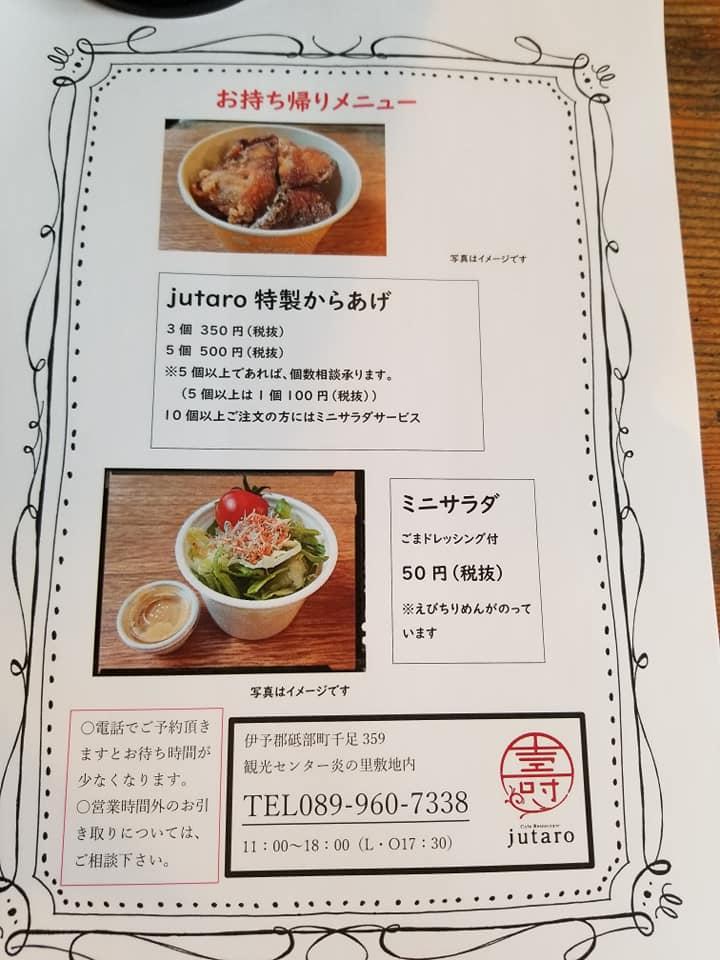 お持ち帰りメニュー
写真はイメージです
jutaro 特製からあげ
3個 350円(税抜)
5個 500円(税抜)
※5個以上であれば、個数相談承ります。
(5個以上は1個100円(税抜))
10個以上ご注文の方にはミニサラダサービス
ミニサラダ
ごまドレッシング付
50円(税抜)
※えびちりめんがのって
います
写真はイメージです
○電話でご予約頂き
ますとお待ち時間が
少なくなります。
○営業時間外のお引
き取りについては、
ご相談下さい。
伊予郡砥部町千足359
観光センター炎の里敷地内
TEL089-960-7338
11:00～18:00(L・O17:30)
壽
Cafe Restaurant
jutaro